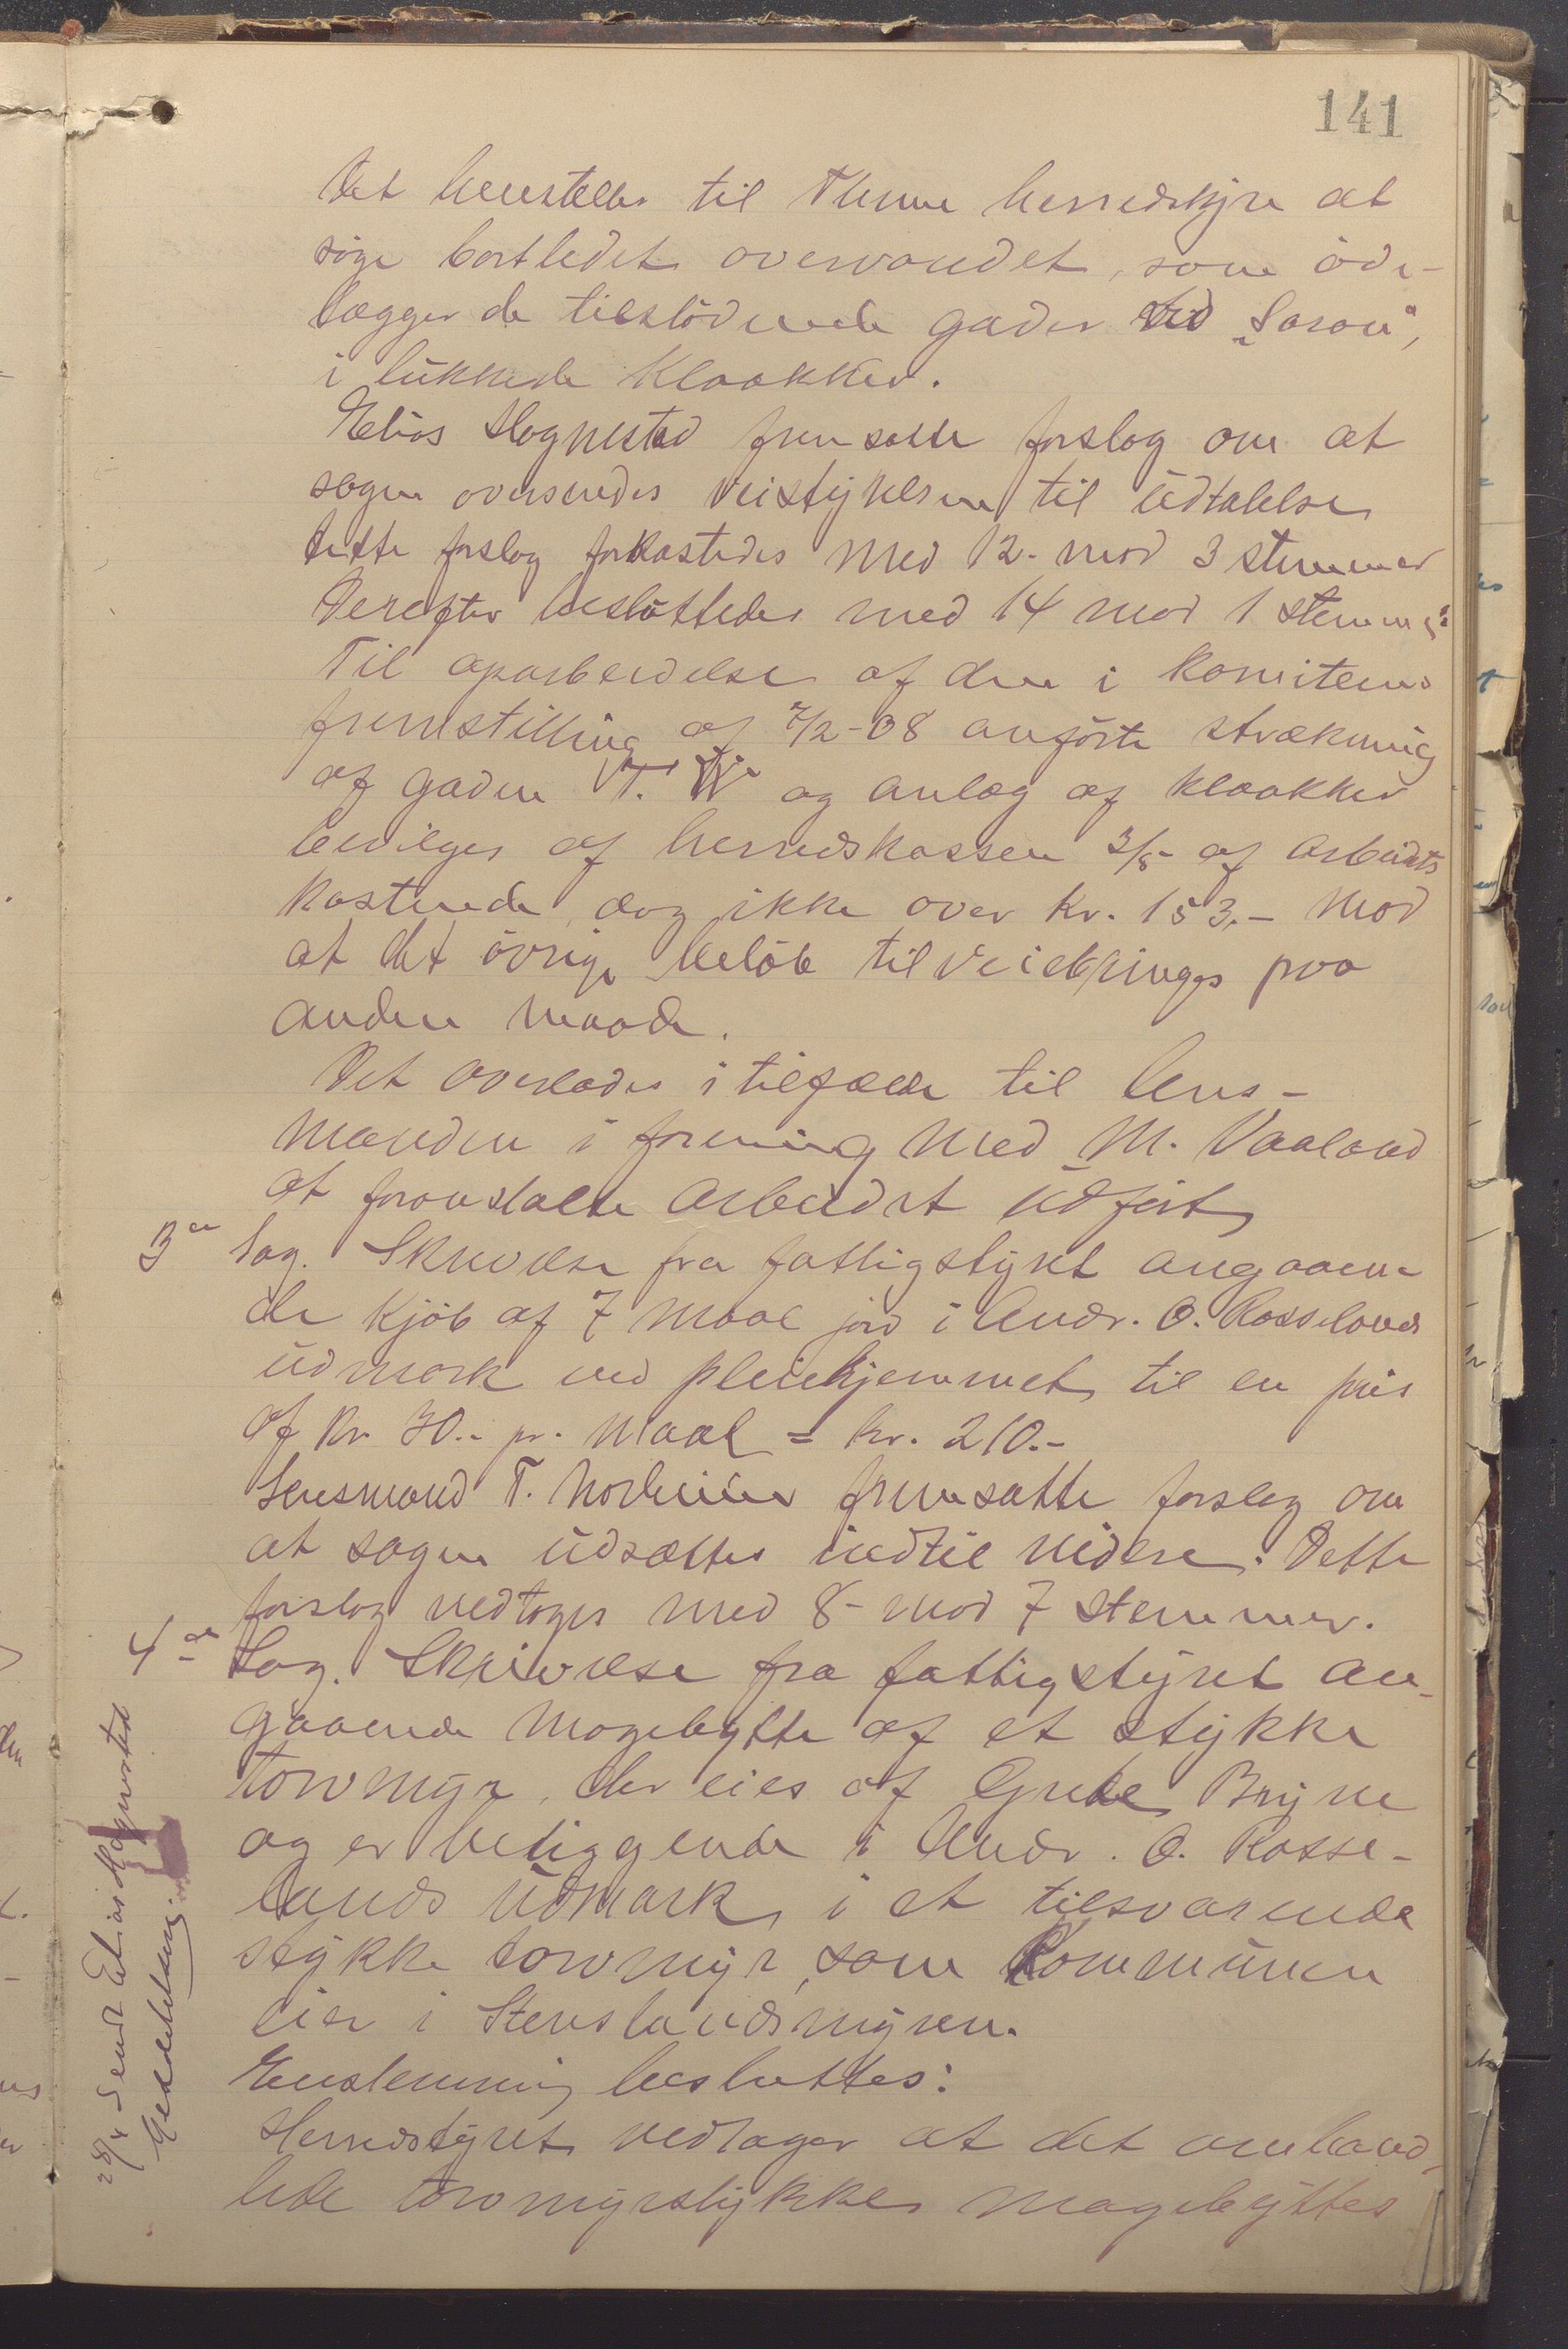 141
Det henstilles til Thime herredstyre at
søge bortledet overvandet, som øde-
lægger de tilstødende gader ved "Saron",
i lukkede kloakker.
Elias Hognestad fremsatte forslag om at
sagen oversendes veistyrelsen til udtalelse
dette forslag forkastedes med 12 - mod 3 stemmer
Derefter besluttedes med 14 mod 1 stemme:
Til oparbeidelse af den i komiteens
fremstilling af 7/2-08 anførte strækning
af gaden "T. W" og anlæg af kloakker
bevilges af herredskassen 3/5 af arbeidets
kostende, dog ikke over kr. 153,- mod
at det øvrige beløb tilveiebringes paa
anden maade.
Det overlades i tilfælde til lens-
manden i forening med M. Vaaland
at foranstalte arbeidet udført
3de Sag. Skrivelse fra fattigstyret angaaen-
de kjøb af 7 maal jord i Andr. O. Rosselands
udmark ved pleiehjemmet til en pris
af kr 30.- pr. maal = kr. 210.-
Lensmand T. Norheim fremsatte forslag om
at sagen udsættes indtil videre. Dette
forslag vedtoges med 8 - mod 7 stemmer.
4de Sag. Skrivelse fra fattigstyret an-
gaaende magebytte af et stykke
torvmyr, der eies af Grete Bryne
og er beliggende i Andr. O. Rosse-
lands udmark, i et tilsvarende
stykke torvmyr, som kommunen
eier i Stenslandsmyren.
Enstemmig besluttes:
Herredstyret vedtager at det omhand-
lede torvmyrstykke magebyttes
28/4 sendt Elias Hognestad
Meddelelse